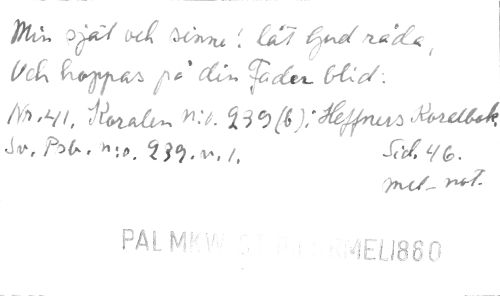 Min själ och sinne! låt Gud råda,
Och hoppas på din Fader blid:
Nr. 41, Koralen n:o. 239 (b); Heffners Koralbok,
Sv. Psb. n:o. 239. v. 1. Sid. 46.
mel- not.
PALMKW